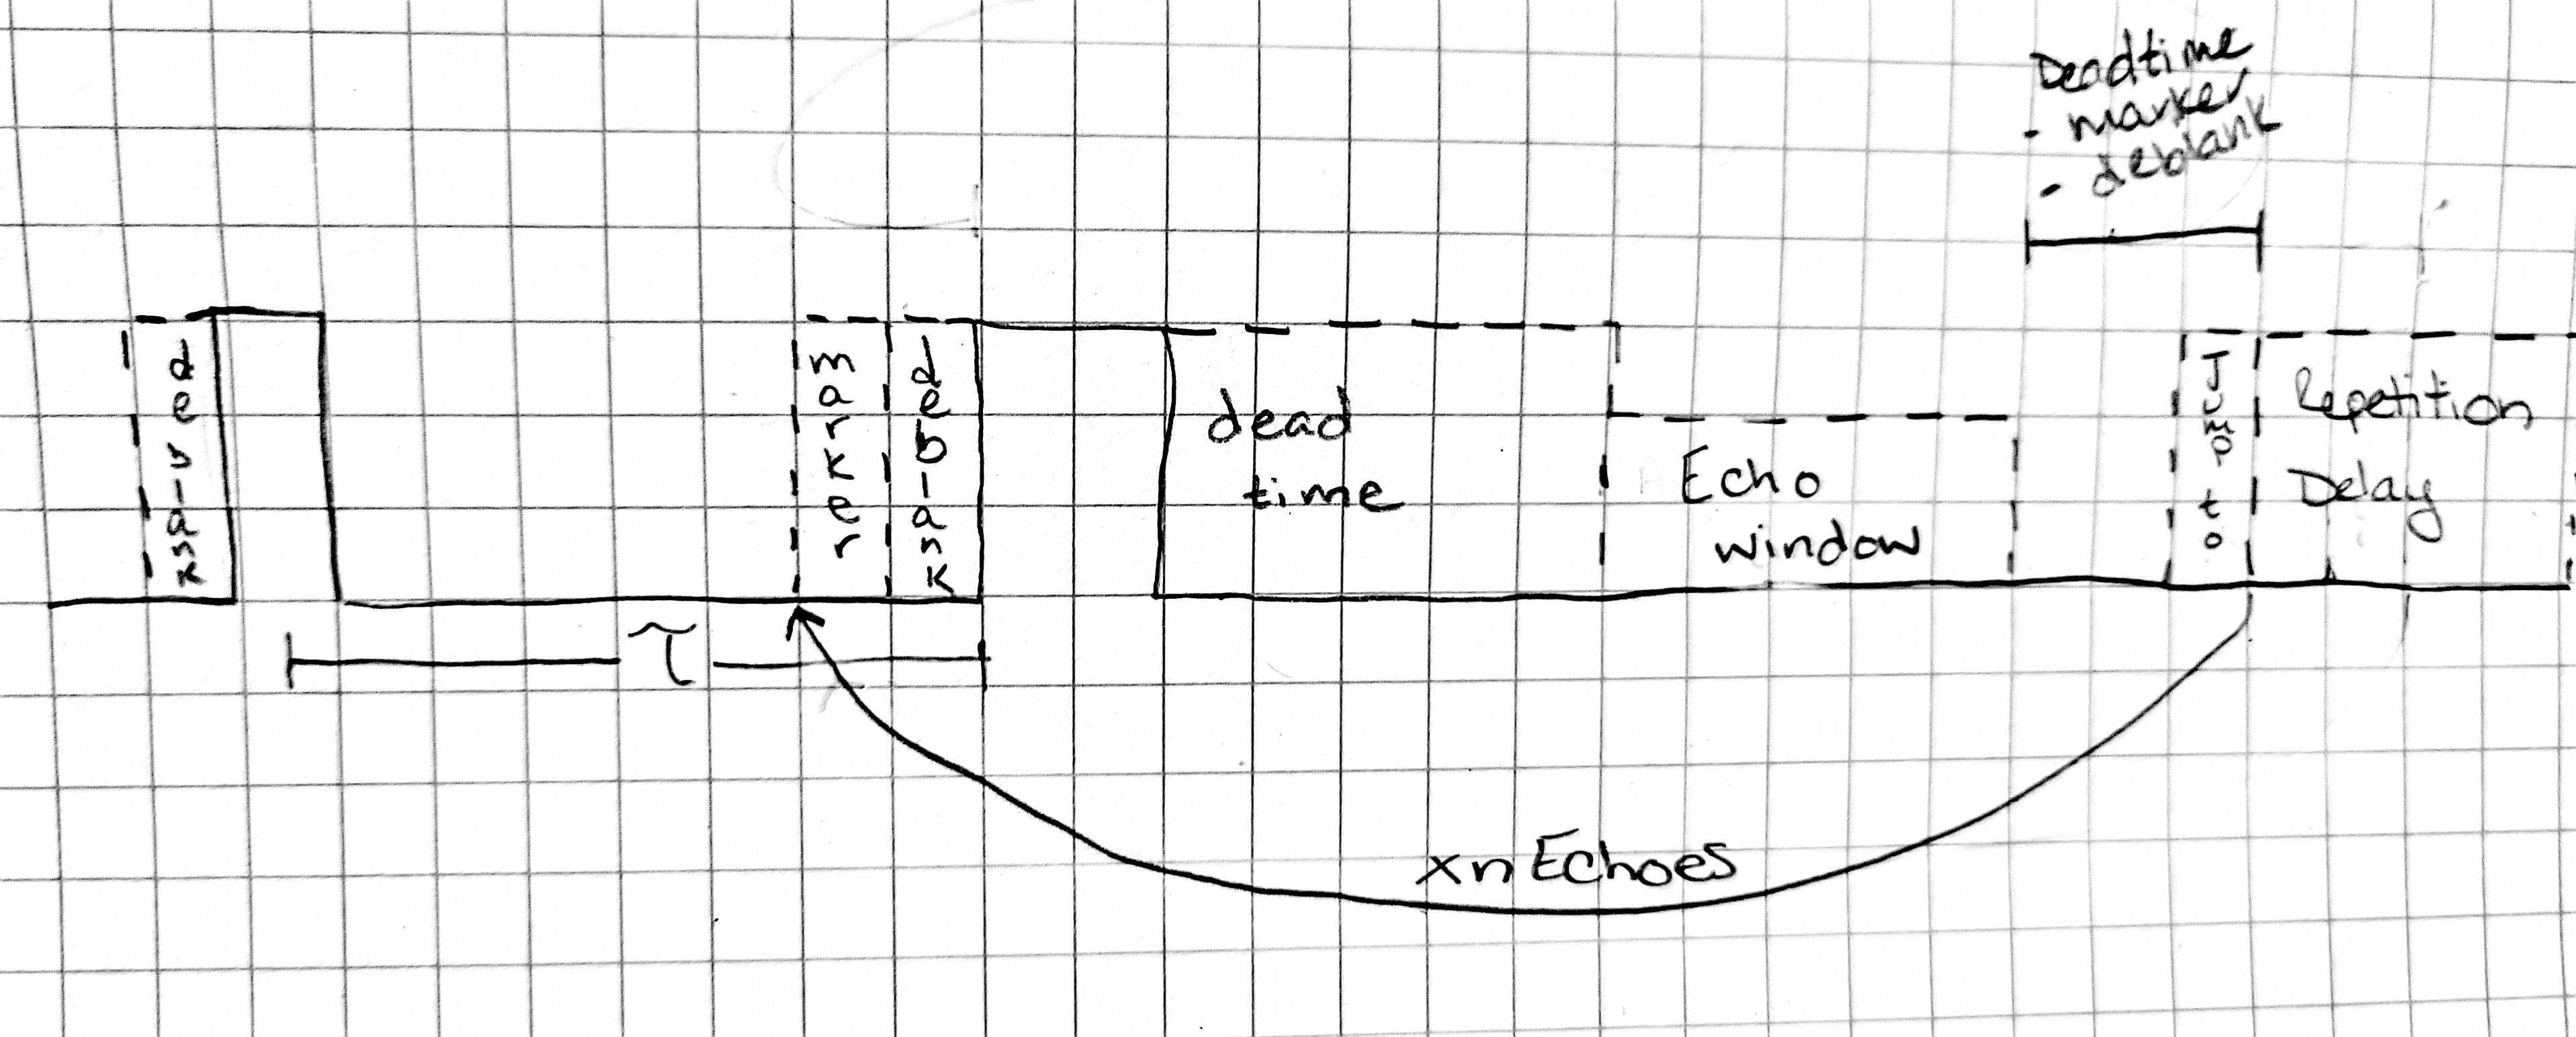 Deadtime
- marker
- deblank
deblank
marker
deblank
dead
time
Echo
window
Jump to
Repetition
Delay
τ
xnEchoes